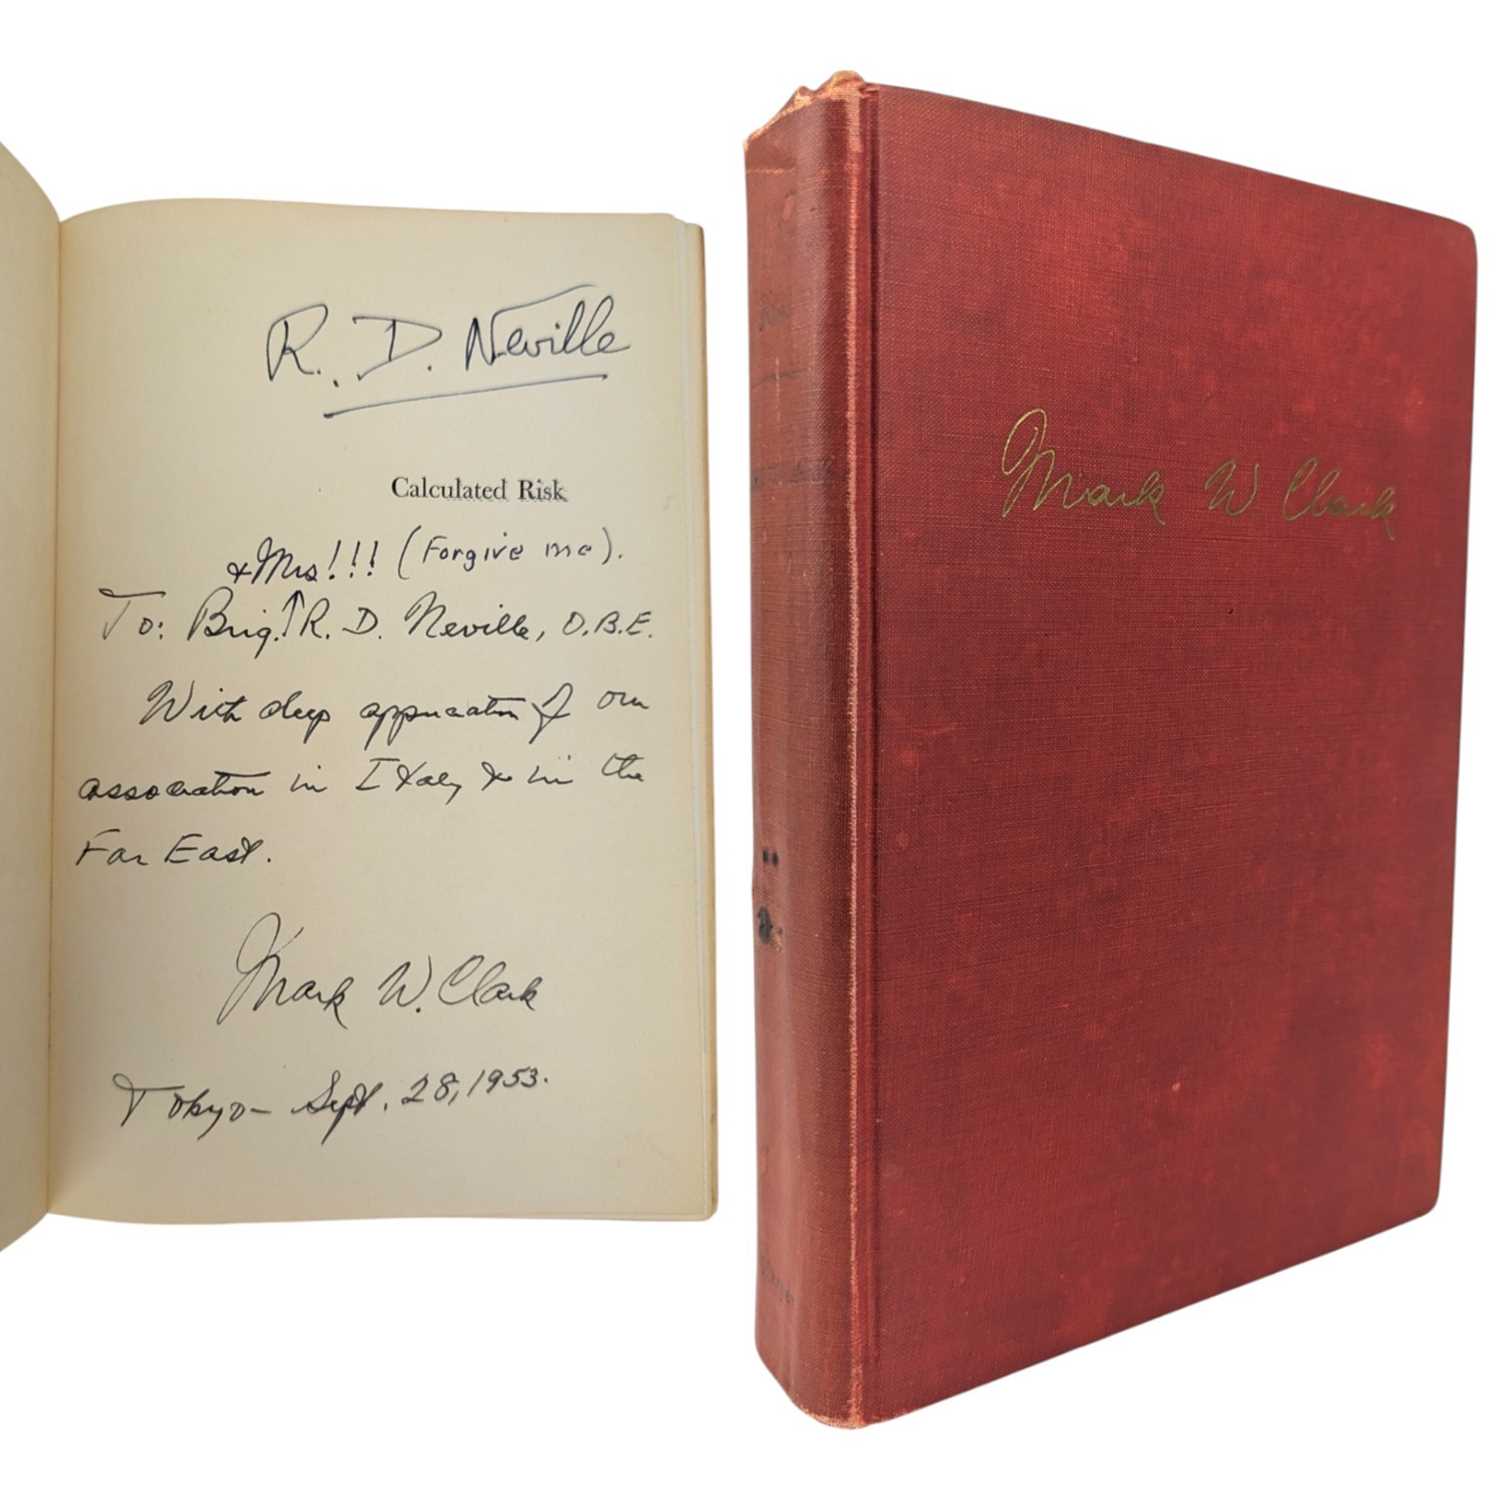 R. D. Neville
Calculated Risk
& Mrs!!! (Forgive me).
To: Brig. ↑ R. D. Neville, O.B.E.
With deep appreciation of our
association in Italy & in the
Far East.
Mark W. Clark
Tokyo - Sept. 28, 1953.
Mark W Clark